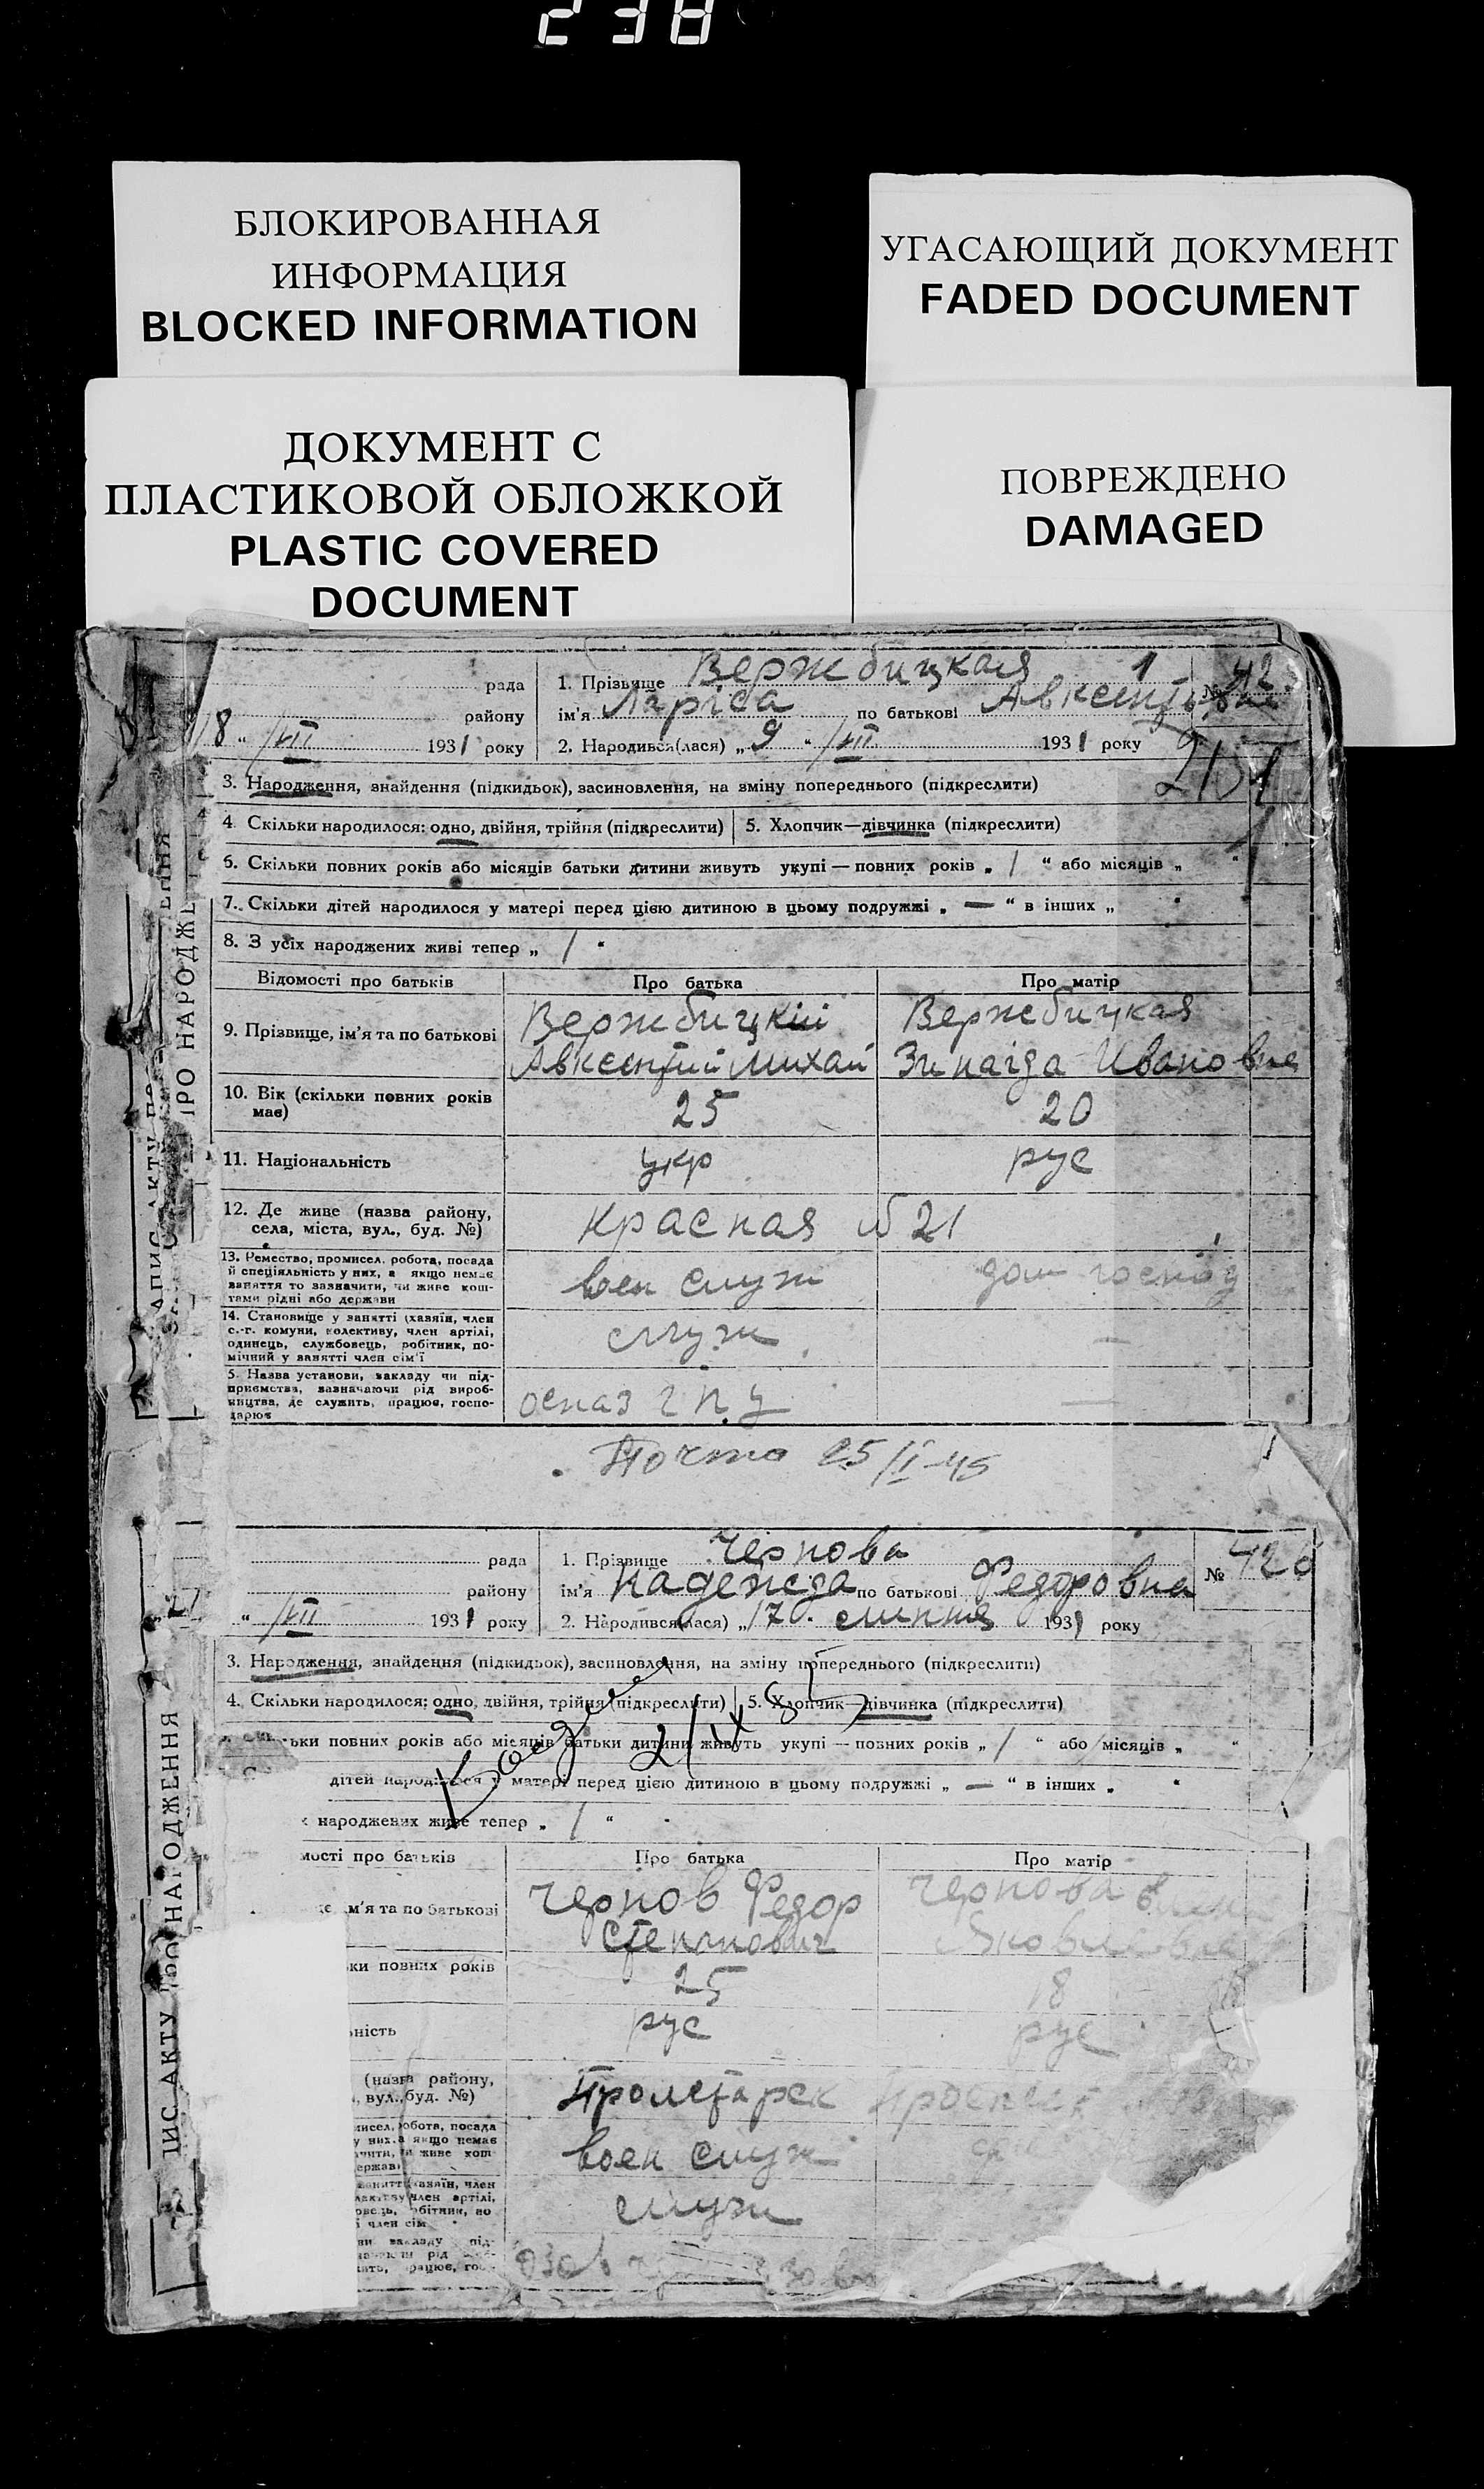 238
БЛОКИРОВАННАЯ
ИНФОРМАЦИЯ
BLOCKED INFORMATION
УГАСАЮЩИЙ ДОКУМЕНТ
FADED DOCUMENT
ДОКУМЕНТ С
ПЛАСТИКОВОЙ ОБЛОЖКОЙ
PLASTIC COVERED
DOCUMENT
ПОВРЕЖДЕНО
DAMAGED
рада
1. Прізвище Вержбицкая 1
району
ім'я Ларіса по батькові
18 " /VII 1931 року
2. Народився(лася) „ 9 “ /VII 1931 року
3. Народження, знайдення (підкидьок), засиновлення, на зміну попереднього (підкреслити)
4. Скільки народилося: одно, двійня, трійня (підкреслити) 5. Хлопчик—дівчинка (підкреслити)
6. Скільки повних років або місяців батьки дитини живуть укупі — повних років „ / “ або місяців „ “
7. Скільки дітей народилося у матері перед цією дитиною в цьому подружжі „ — “ в інших „ “
8. З усіх народжених живі тепер „ / “
Відомості про батьків Про батька Про матір
9. Прізвище, ім'я та по батькові
Вержбицкій
Авксентий Михай
Вержбицкая
Зинаіда Ивановна
10. Вік (скільки повних років
має)
25 20
11. Національність укр рус
12. Де живе (назва району,
села, міста, вул., буд. №)
Красная № 21
13. Ремество, промисел, робота, посада
й спеціяльність у них, а якщо немає
заняття то зазначити, чи живе кош-
тами рідні або держави
воен служ
дом господ
14. Становище у занятті (хазяїн, член
с.-г. комуни, колективу, член артілі,
одинець, службовець, робітник, по-
мічний у занятті член сім'ї
служ —
5. Назва установи, закладу чи під-
приємства, зазначаючи рід вироб-
ництва, де служить, працює, госпо-
дарює
осназ г п у —
Почта 25/II-45
рада
1. Прізвище Чернова
району
ім'я Надежда по батькові Федоровна
№
“ /VII 1931 року
2. Народився(лася) „ 17 “ липня 1931 року
3. Народження, знайдення (підкидьок), засиновлення, на зміну попереднього (підкреслити)
4. Скільки народилося: одно, двійня, трійня (підкреслити) 5. Хлопчик—дівчинка (підкреслити)
повних років або місяців батьки дитини живуть укупі — повних років „ / “ або місяців „ “
дітей народилося у матері перед цією дитиною в цьому подружжі „ — “ в інших „ “
народжених живе тепер „ / “
мості про батьків Про батька Про матір
м'я та по батькові
Чернов Федор
Степанович
Чернова
Яковлевна
ки повних років
25 18
ність рус рус
(назва району,
вул., буд. №)
Пролетарск
обота, посада
у них, а якщо немає
чити, чи живе кош
воен служ
член артілі,
член сім
служ
закладу під-
рід
ЗАПИС АКТУ ПРО НАРОДЖЕННЯ
ПИС АКТУ ПРО НАРОДЖЕННЯ